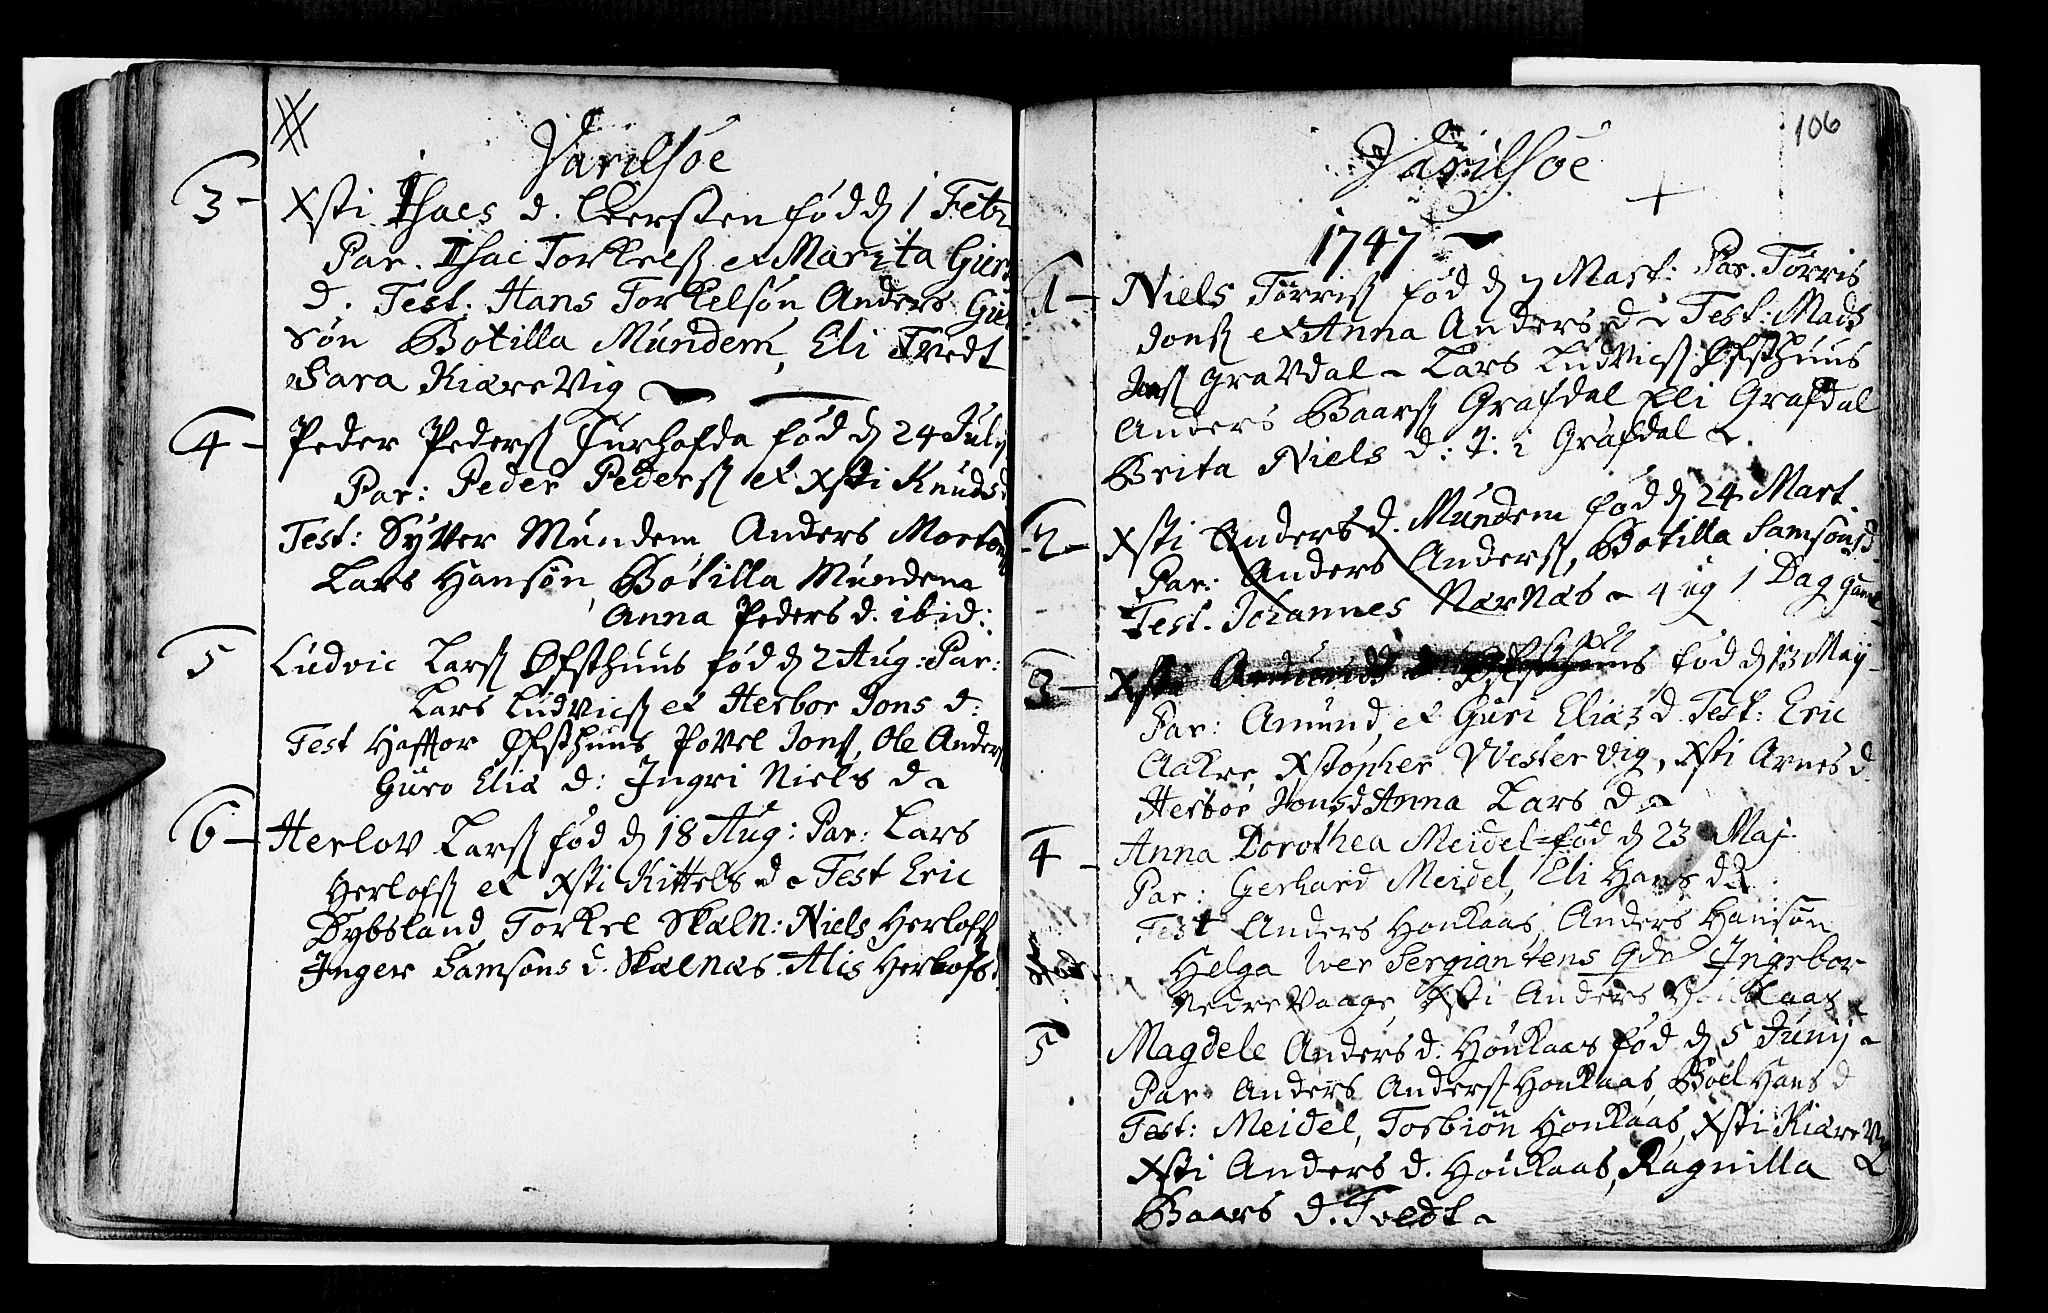 Varilsøe
3 - Xsti Isacs d. Kersten fød d 1 Febr
Par. Isac Torkels et Marita Gur
d. Test. Hans Torkelsøn Anders Gu
søn Botilla Mundem, Eli Tvedt
Sara KiæreVig
4 - Peder Peders fød d 24 July
Par: Peder Peders et Xsti Knuds d
Test: Syver Mundem Anders Mortens
Lars Hansøn, Botilla Mundem
Anna Peders d. ibid:
5 Ludvic Lars Øfsthuus fød d 2 Aug: Par:
Lars Ludvics et Herbor Jons d:
Test Haffor Øfsthuus, Povel Jons, Ole Anders
Guro Elia d: Ingri Niels d
6 - Herlov Lars fød d 18 Aug: Par: Lars
Herlofs et Xsti Kittels d. Test Eric
Dybsland Torkel Skæln: Niels Herlofs
Inger Samsons d. Skælnæs. Alis Herlofs d.
106
Varilsøe
1747
1 - Niels Torris fød d 7 Mart: Par. Torris
Jons et Anna Anders d Test: Mads
Jons Gravdal - Lars Ludvics Øfsthuus
Anders Baars Grafdal Eli Grafdal
Brita Niels d: J: i Grafdal
2 - Xsti Anders d. Mundem fød d 24 Mart.
Par: Anders Anders, Botilla Samsons d.
Test. Johannes Nærnæs - 4 ug 1 Dag gamel
3 - Xsti Amunds d fød d 13 Maij
Par: Amund, et Guri Elias d. Test: Eric
Aakre Xstopher Wester Vig, Xsti Arnes d.
Herbor Jons d Anna Lars d
4 - Anna Dorothea Meidel fød d 23 Maj
Par: Gerhard Meidel, Eli Hans d
Test Anders Honkaas, Anders Hansøn
Helga Iver Sergiantens Qde Ingebor
Nedre Vaage, Xsti Anders
5 Magdele Anders d. Honkaas fød d 5 Junij
Par: Anders Anders Honkaas, Boel Hans d
Test: Meidel, Torbiøn Honkaas, Xsti KiæreV
Xsti Anders d. Honkaas, Ragnilla
Baars d. Tvedt